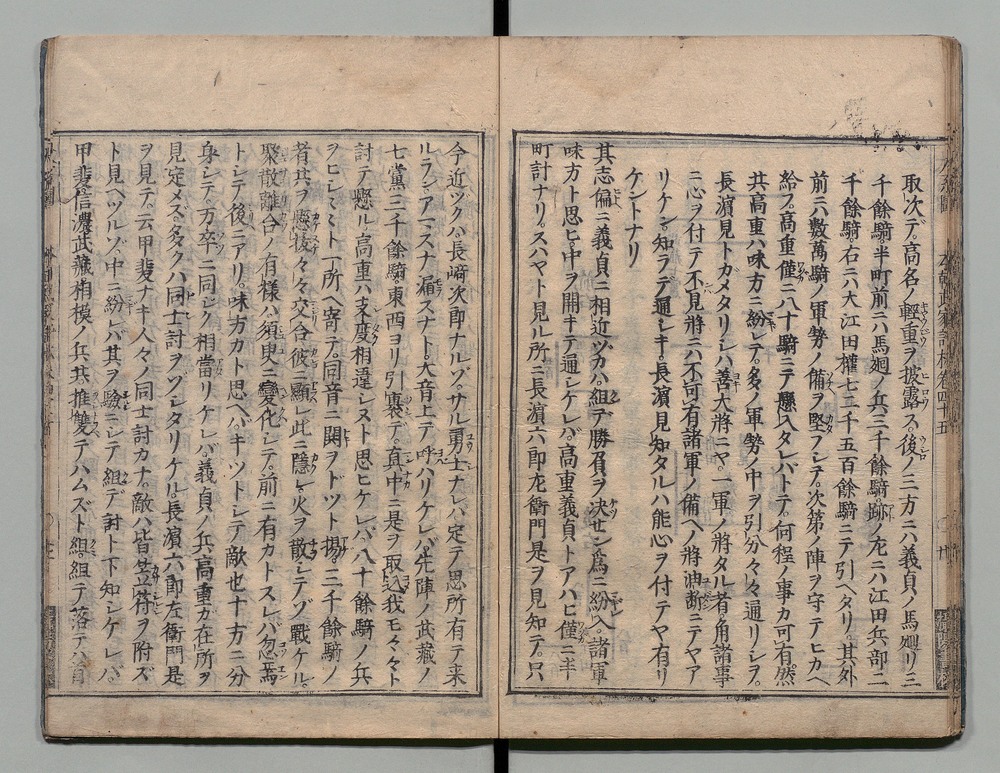 取次デ高名ノ輕重ヲ披露ス。後ノ三方ニハ義貞ノ馬廻リ三
千餘騎。半町前ニハ馬廻ノ兵三千餘騎。跡ノ左ニハ江田兵部二
千餘騎。右ニハ大江田權七二千五百餘騎ニテ引ヘタリ。其外
前ニハ數萬騎ノ軍勢ノ備ヲ堅フシテ。次第ノ陣ヲ守テヒカヘ
給フ。高重僅ニ八十騎ニテ懸入タレバトテ。何程ノ事カ可有。然
共高重ハ味方ニ紛レテ。多ノ軍勢ノ中ヲ引分々々通リシヲ。
長濱見トガメタリシハ善大將ニヤ。一軍ノ將タル者ノ角諸事
ニ心ヲ付テ不見將ニハ不可有。諸軍ノ備ヘノ將油断ニテヤア
リケン。知ラデ通シキ。長濱見知タルハ能心ヲ付テヤ有リ
ケントナリ
其志偏ニ義貞ニ相近ヅカハ。組デ勝負ヲ決セン爲ニ紛入。諸軍
味方カト思ヒ。中ヲ開キテ通シケレバ。高重義貞トアハヒ僅ニ半
町計ナリ。スハヤト見ル所ニ長濱六郎左衛門是ヲ見知テ。只
今近ヅクハ長崎次郎ナルゾ。サル勇士ナレバ定テ思所有テ来
ルラン。アマスナ漏スナト。大音上テ呼ハリケレバ。先陣ノ武藏ノ
七黨三千餘騎。東西ヨリ引裹テ。真中ニ是ヲ取込。我モ々々ト
討テ懸ル。高重ハ支度相違シヌト思ヒケレバ。八十餘騎ノ兵
ヲヒシ々々ト一所ヘ寄テ。同音ニ鬨ヲドツト揚。三千餘騎ノ
者共ヲ懸抜々々交合彼ニ顯レ此ニ隱レ火ヲ散シテゾ戰ケル。
聚散離合ノ有様ハ須臾ニ變化シテ。前ニ有カトスレバ忽焉
トシテ後ニアリ。味方カト思ヘバ。キツトシテ敵也。十方ニ分
身シテ。万卒ニ同シク相當リケレバ。義貞ノ兵高重ガ在所ヲ
見定メズ。多クハ同士討ヲゾシタリケル。長濱六郎左衛門是
ヲ見テ。云甲斐ナキ人々ノ同士討カナ。敵ハ皆笠符ヲ附ズ
ト見ヘツルゾ。中ニ紛レバ其ヲ驗ニシテ組デ討ト下知シケレバ。
甲斐信濃武藏相模ノ兵共推雙テハムズト組。組テ落テハ首